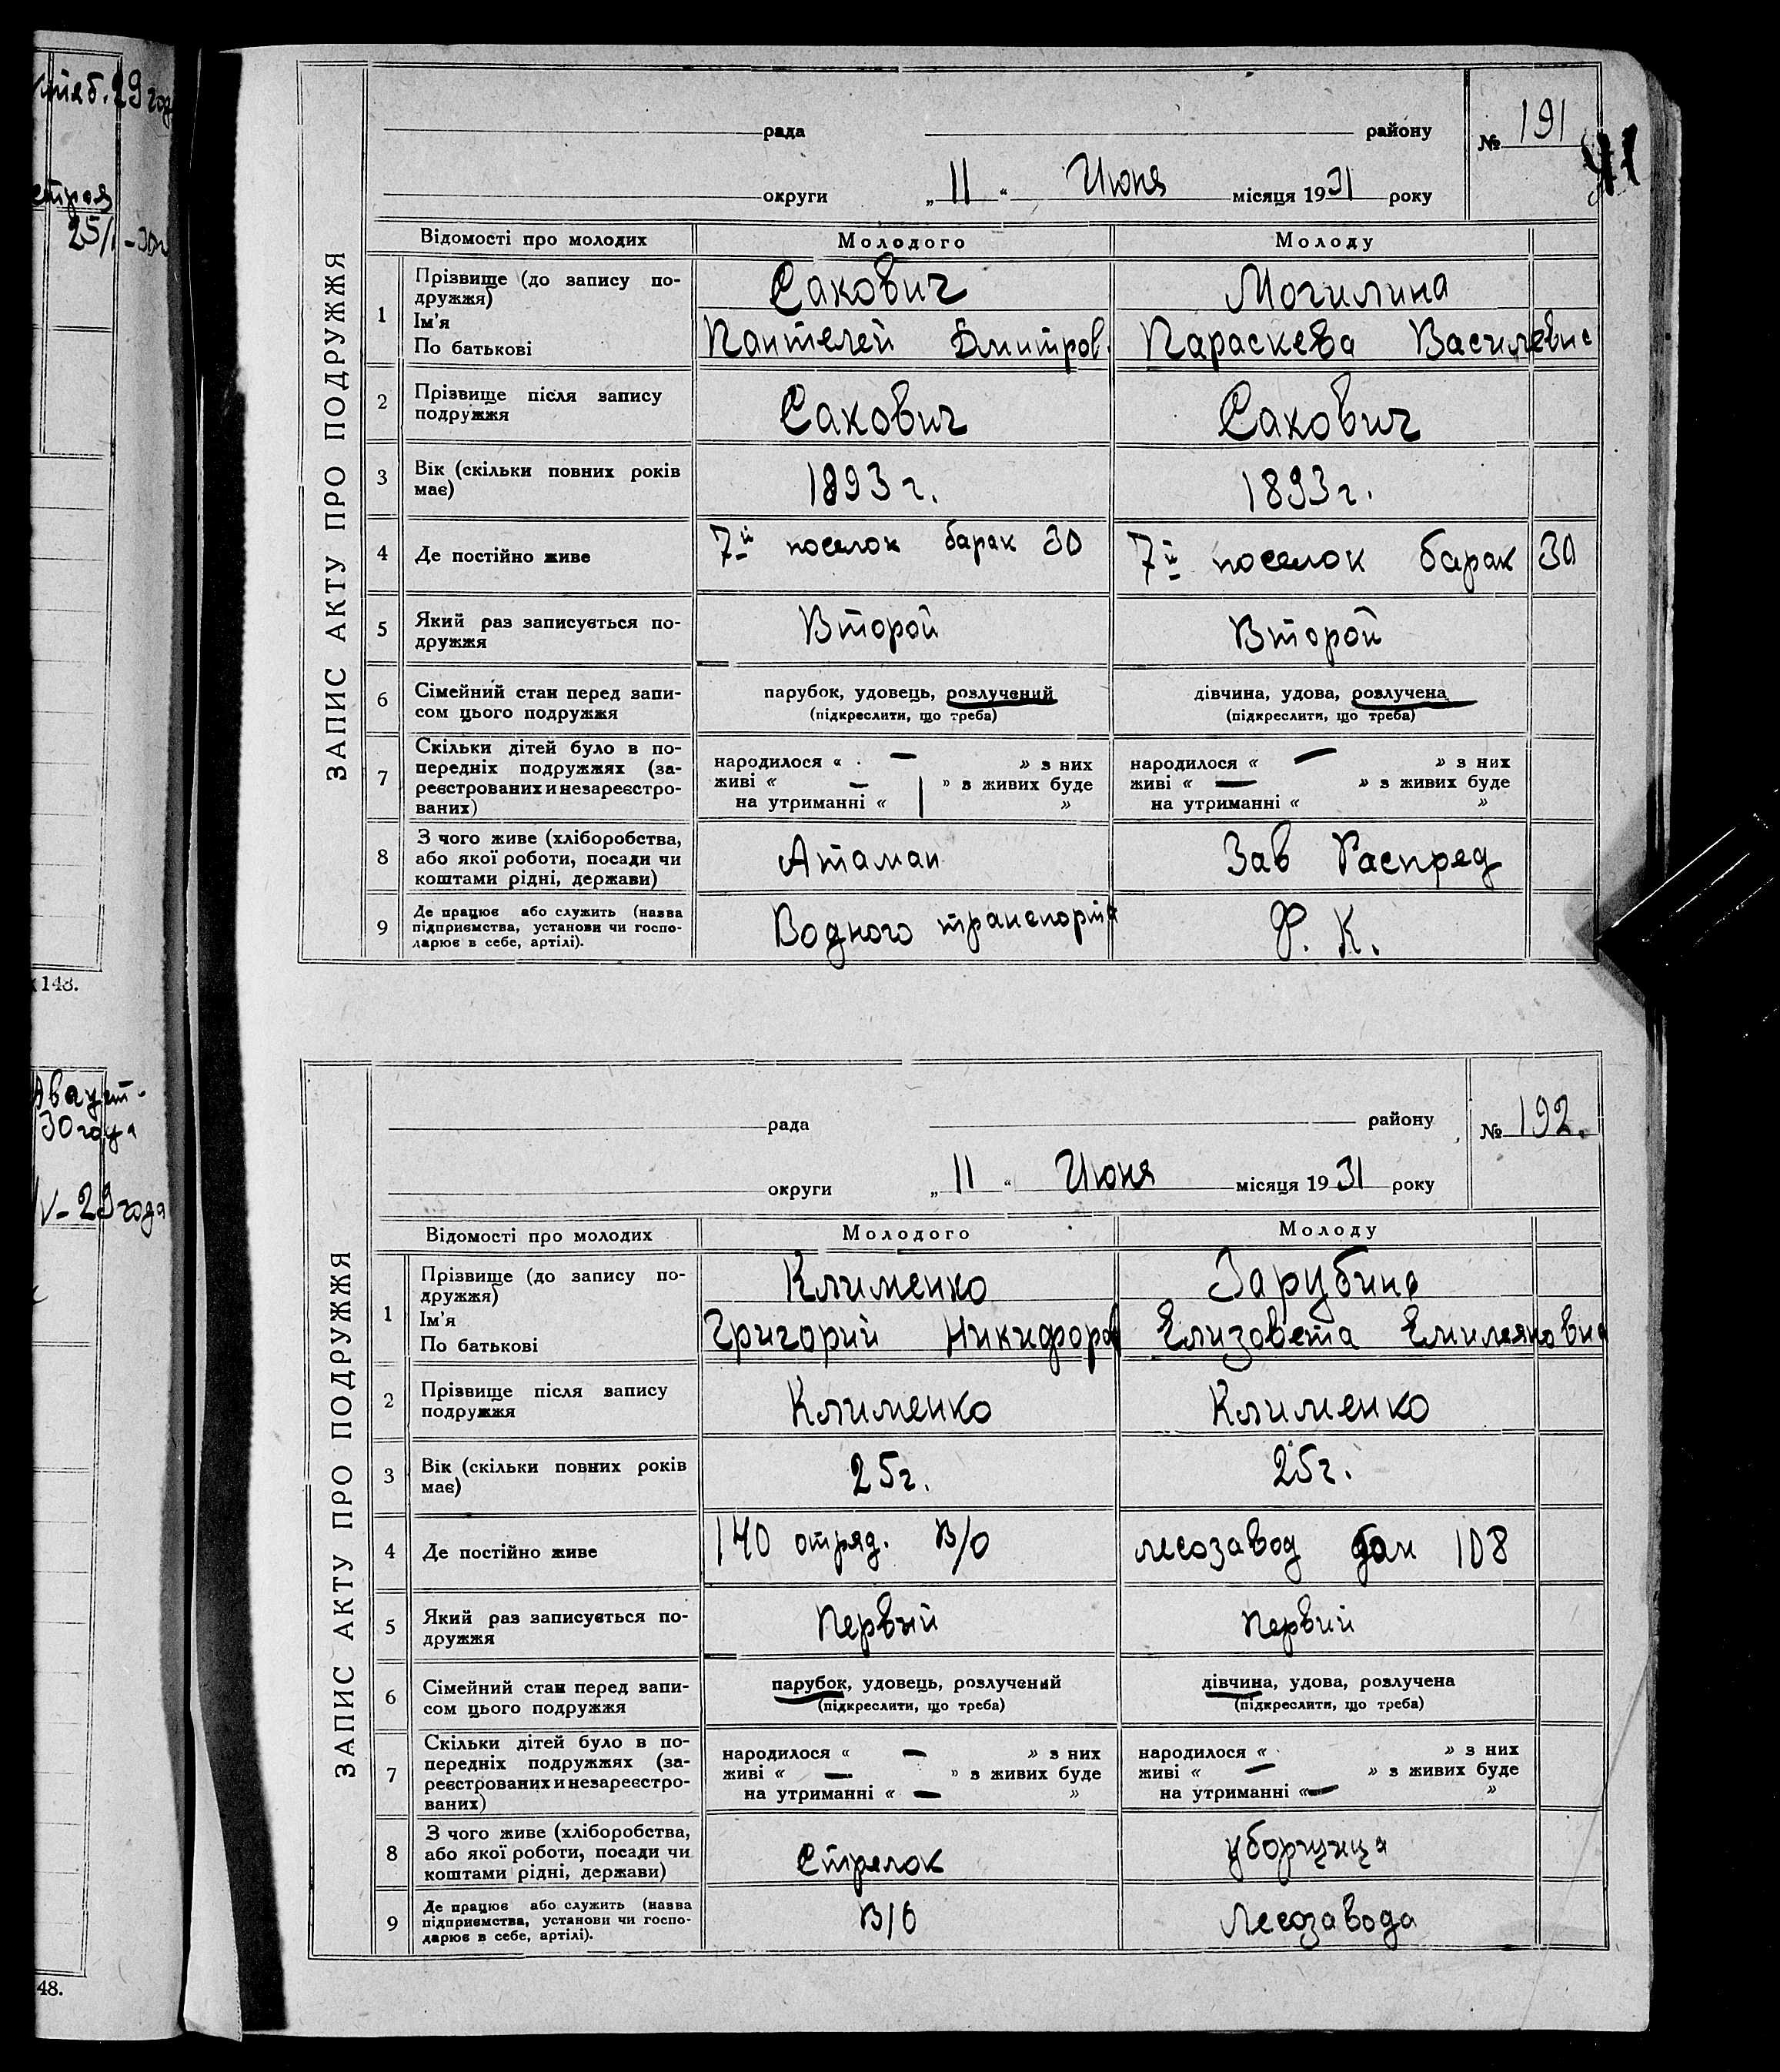 29 год
25/I - 30г
148.
Август
30 года
V - 29 года
48.
ЗАПИС АКТУ ПРО ПОДРУЖЖЯ
рада району
№ 191
округи „11“ Июня місяця 1931 року
Відомості про молодих Молодого Молоду
1 Прізвище (до запису по-
дружжя) Сакович Могилина
Ім'я
По батькові Пантелей Дмитров. Параскева Василевна
2 Прізвище після запису
подружжя Сакович Сакович
3 Вік (скільки повних років
має) 1893 г. 1893 г.
4 Де постійно живе 7й поселок барак 30 7й поселок барак 30
5 Який раз записується по-
дружжя Второй Второй
6 Сімейний стан перед запи-
сом цього подружжя
парубок, удовець, розлучений дівчина, удова, розлучена
(підкреслити, що треба) (підкреслити, що треба)
7 Скільки дітей було в по-
передніх подружжях (за-
реєстрованих и незареєстро-
ваних)
народилося « — » з них народилося « — » з них
живі « — » в живих буде живі « — » в живих буде
на утриманні « » на утриманні « »
8 З чого живе (хліборобства,
або якої роботи, посади чи
коштами рідні, держави) Атаман Зав Распред
9 Де працює або служить (назва
підприємства, установи чи госпо-
дарює в себе, артілі). Водного транспорта Ф. К.
ЗАПИС АКТУ ПРО ПОДРУЖЖЯ
рада району
№ 192.
округи „11“ Июня місяця 1931 року
Відомості про молодих Молодого Молоду
1 Прізвище (до запису по-
дружжя) Клименко Зарубина
Ім'я
По батькові Григорий Никифоров Елизовета Емиляновна
2 Прізвище після запису
подружжя Клименко Клименко
3 Вік (скільки повних років
має) 25 г. 25 г.
4 Де постійно живе 140 отряд. В/О лесозавод дом 108
5 Який раз записується по-
дружжя Первый Первий
6 Сімейний стан перед запи-
сом цього подружжя
парубок, удовець, розлучений дівчина, удова, розлучена
(підкреслити, що треба) (підкреслити, що треба)
7 Скільки дітей було в по-
передніх подружжях (за-
реєстрованих и незареєстро-
ваних)
народилося « — » з них народилося « » з них
живі « — » в живих буде живі « — » в живих буде
на утриманні « — » на утриманні « — »
8 З чого живе (хліборобства,
або якої роботи, посади чи
коштами рідні, держави) Стрелок уборщица
9 Де працює або служить (назва
підприємства, установи чи госпо-
дарює в себе, артілі). В/О Лесозавода